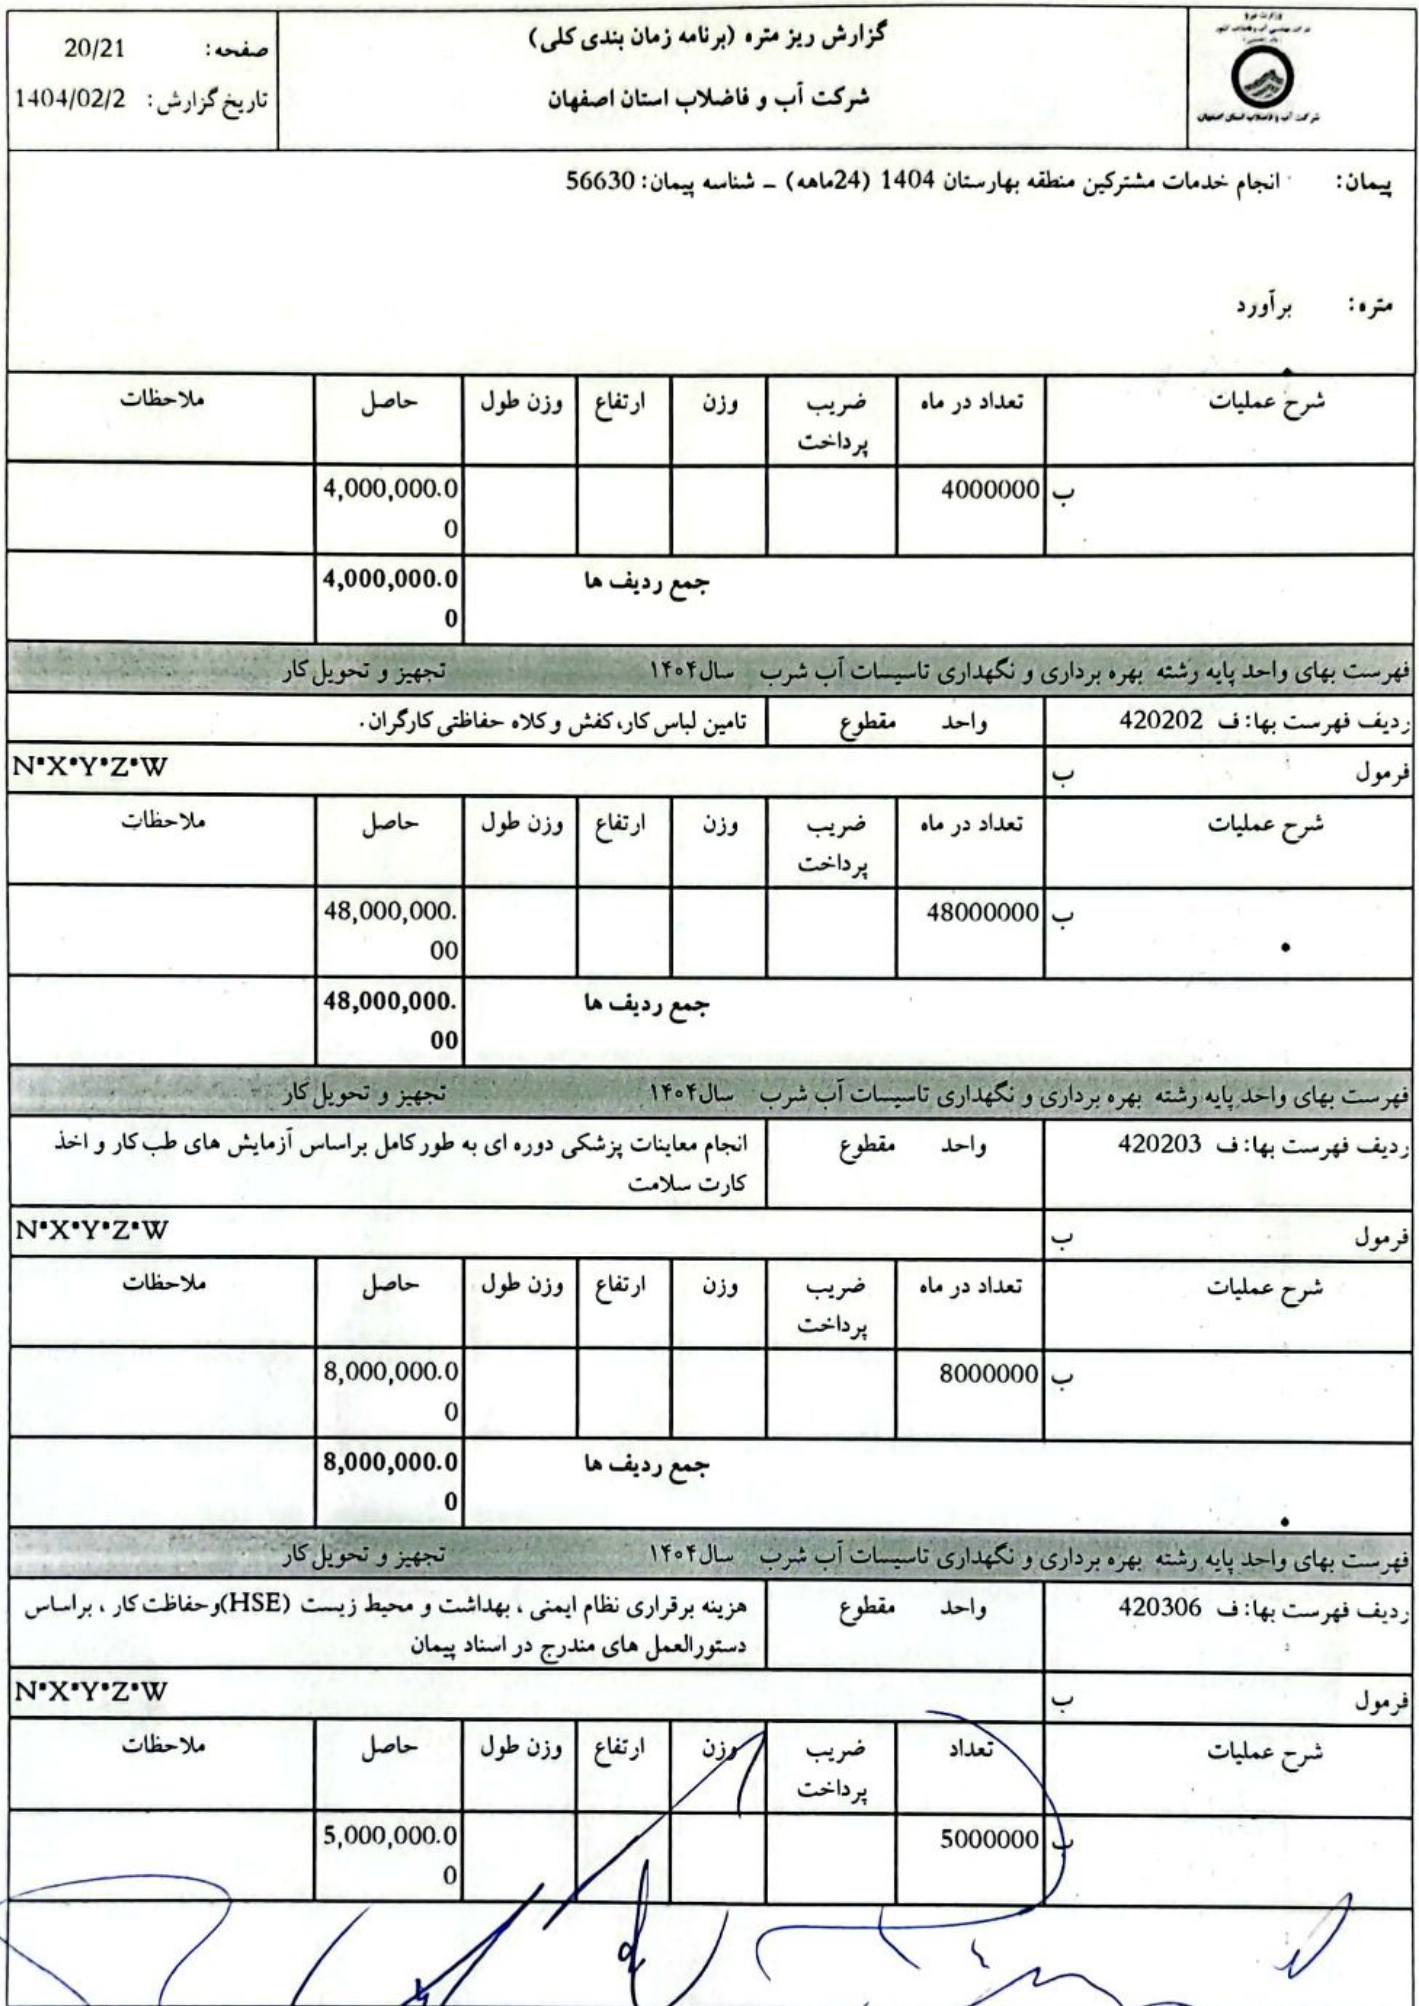 گزارش ریز متره (برنامه زمان بندی کلی)
شرکت آب و فاضلاب استان اصفهان
صفحه: 20/21
تاریخ گزارش: 1404/02/2
وزارت نیرو
شرکت آب و فاضلاب استان اصفهان
پیمان: انجام خدمات مشترکین منطقه بهارستان 1404 (24ماهه) ـ شناسه پیمان: 56630
متره: برآورد
شرح عملیات تعداد در ماه ضریب پرداخت وزن ارتفاع وزن طول حاصل ملاحظات
ب 4000000 4,000,000.00
جمع ردیف ها 4,000,000.00
فهرست بهای واحد پایه رشته بهره برداری و نگهداری تاسیسات آب شرب سال۱۴۰۴ تجهیز و تحویل کار
ردیف فهرست بها: ف 420202 واحد مقطوع تامین لباس کار، کفش و کلاه حفاظتی کارگران.
فرمول ب N*X*Y*Z*W
شرح عملیات تعداد در ماه ضریب پرداخت وزن ارتفاع وزن طول حاصل ملاحظات
ب 48000000 48,000,000.00
جمع ردیف ها 48,000,000.00
فهرست بهای واحد پایه رشته بهره برداری و نگهداری تاسیسات آب شرب سال۱۴۰۴ تجهیز و تحویل کار
ردیف فهرست بها: ف 420203 واحد مقطوع انجام معاینات پزشکی دوره ای به طور کامل براساس آزمایش های طب کار و اخذ
کارت سلامت
فرمول ب N*X*Y*Z*W
شرح عملیات تعداد در ماه ضریب پرداخت وزن ارتفاع وزن طول حاصل ملاحظات
ب 8000000 8,000,000.00
جمع ردیف ها 8,000,000.00
فهرست بهای واحد پایه رشته بهره برداری و نگهداری تاسیسات آب شرب سال۱۴۰۴ تجهیز و تحویل کار
ردیف فهرست بها: ف 420306 واحد مقطوع هزینه برقراری نظام ایمنی ، بهداشت و محیط زیست (HSE)و حفاظت کار ، براساس
دستورالعمل های مندرج در اسناد پیمان
فرمول ب N*X*Y*Z*W
شرح عملیات تعداد ضریب پرداخت وزن ارتفاع وزن طول حاصل ملاحظات
ب 5000000 5,000,000.00